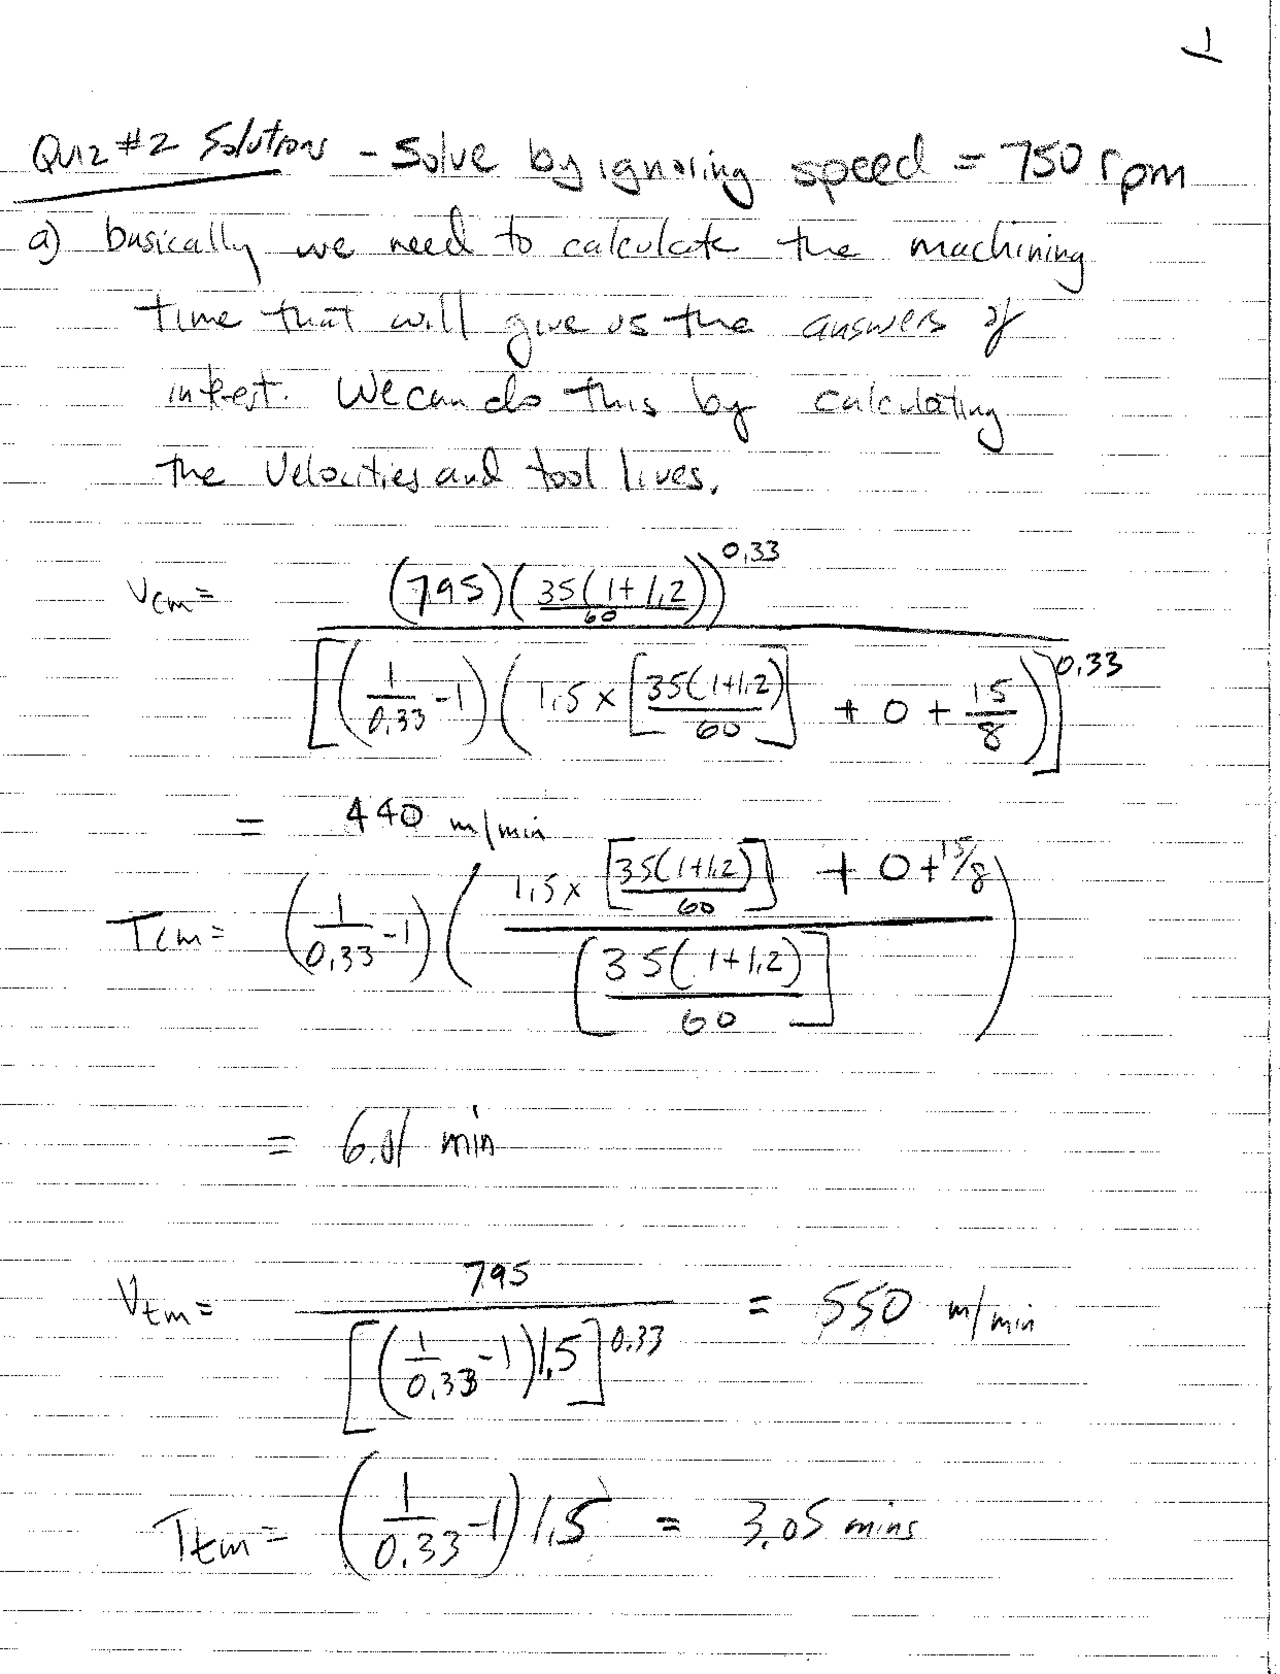 1
Quiz #2 Solution - Solve by ignoring speed = 750 rpm
a) basically we need to calculate the machining
time that will give us the answers of
interest. We can do this by calculating
the velocities and tool lives.
Vcm = (795)(35(1+1.2)/60)^0.33 / [(1/0.33 - 1)(1.5 x [35(1+1.2)/60] + 0 + 15/8)]^0.33
= 440 m/min
Tcm = (1/0.33 - 1)(1.5 x [35(1+1.2)/60] + 0 + 15/8 / [35(1+1.2)/60])
= 6.01 min
Vtm = 795 / [(1/0.33 - 1)1.5]^0.33 = 550 m/min
Ttm = (1/0.33 - 1)1.5 = 3.05 mins